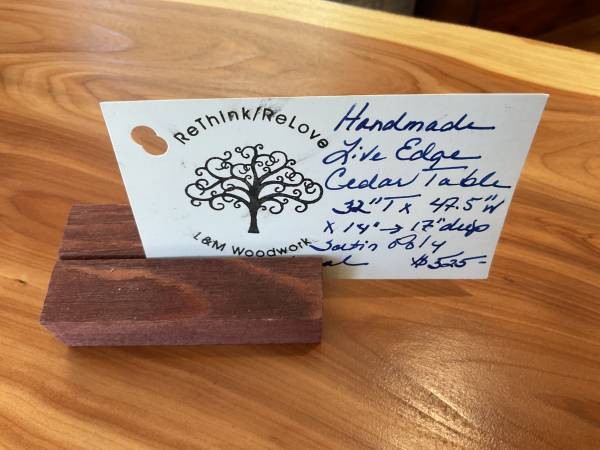 ReThink/ReLove
L&M Woodwork
Handmade
Live Edge
Cedar Table
32"T x 47.5"W
x 14" → 17" deep
Satin Poly
$525-